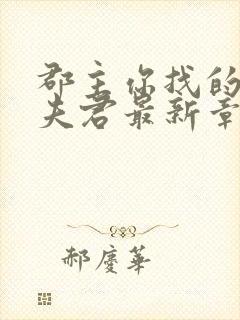 郡主你找的
夫君最新章
郝庆华